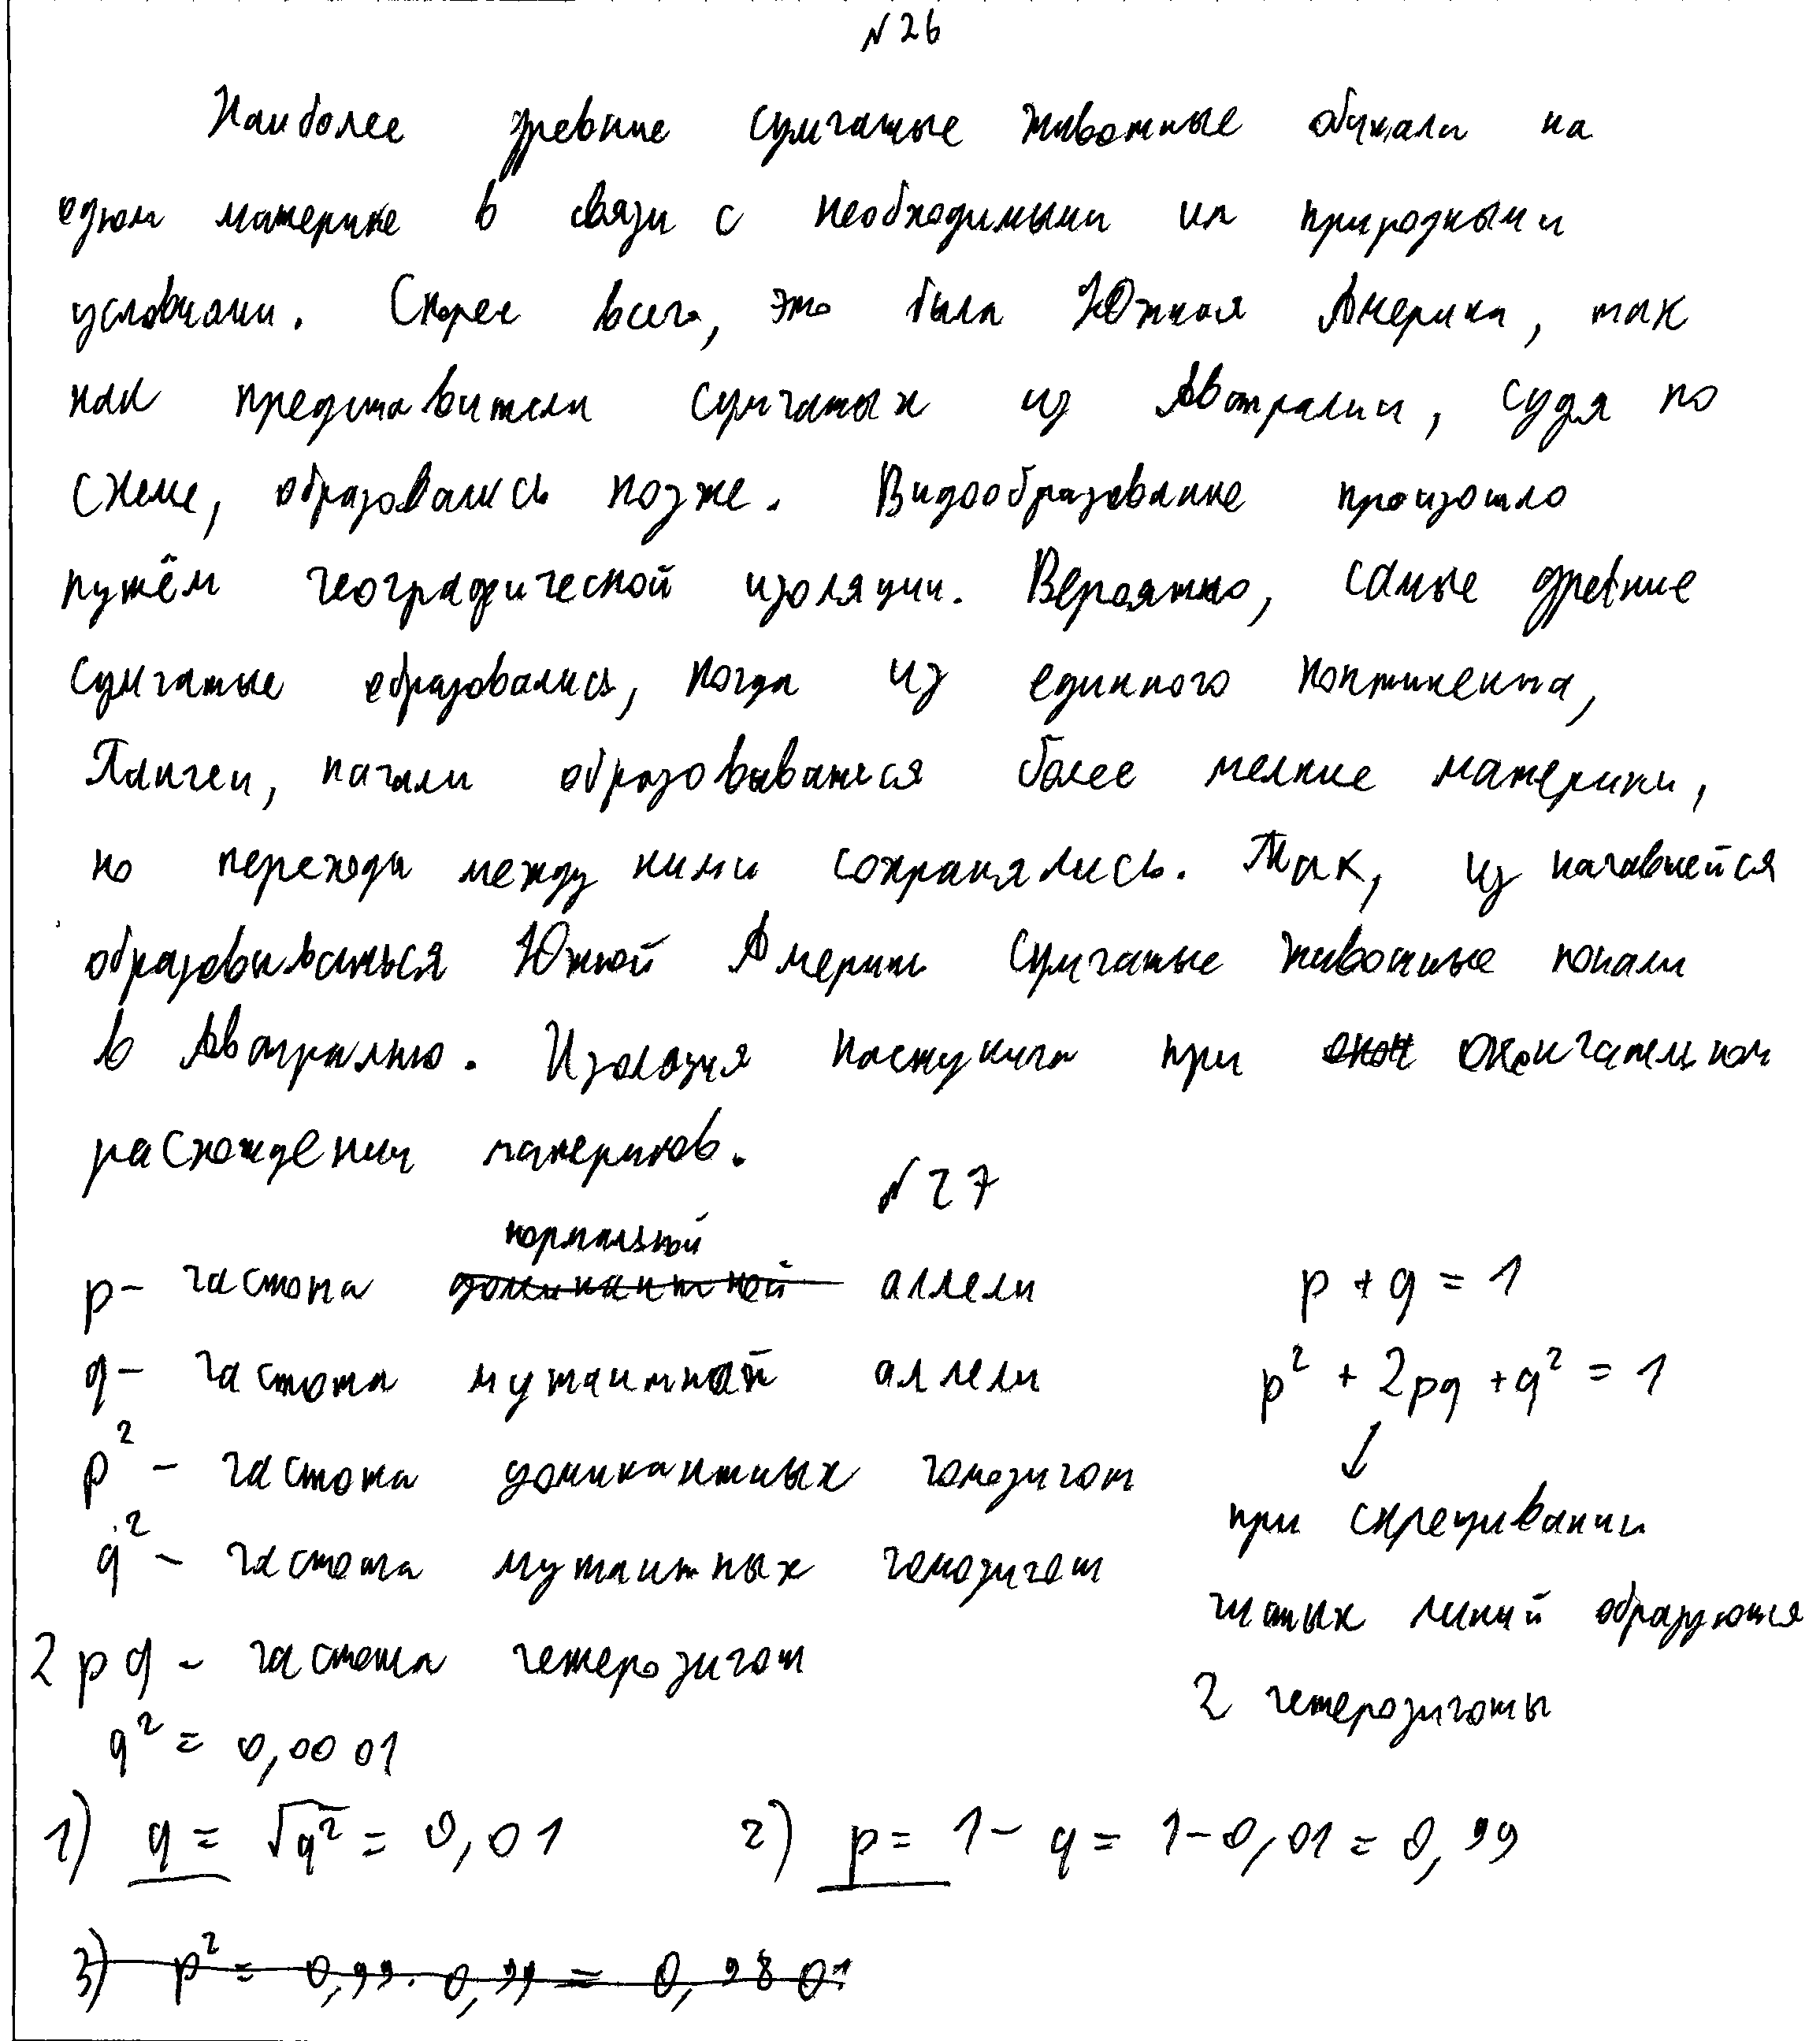 №26
Наиболее древние сумчатые животные обитали на
одном материке в связи с необходимыми им природными
условиями. Скорее всего, это была Южная Америка, так
как представители сумчатых из Австралии, судя по
схеме, образовались позже. Видообразование произошло
путём географической изоляции. Вероятно, самые древние
сумчатые образовались, когда из единного континента,
Пангеи, начали образовываться более мелкие материки,
но переходы между ними сохранялись. Так, из начавшейся
образовываться Южной Америки сумчатые животные попали
в Австралию. Изоляция наступила при окончательном
расхождении материков.
№27
нормальной
p – частота доминантной аллели
p + q = 1
q – частота мутантной аллели
p² + 2pq + q² = 1
p² – частота доминантных гомозигот
↓
при скрещивании
q² – частота мутантных гомозигот
чистых линий образуются
2pq – частота гетерозигот
2 гетерозиготы
q² = 0,0001
1) q = √q² = 0,01 2) p = 1 – q = 1 – 0,01 = 0,99
3) p² = 0,99 · 0,99 = 0,9801